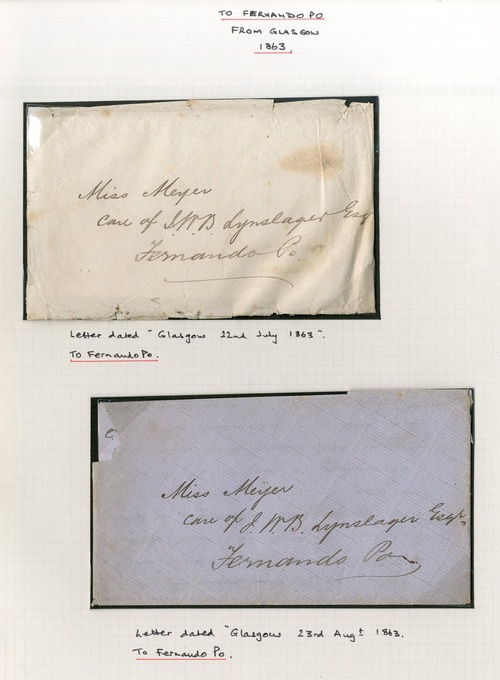 TO FERNANDO PO
FROM GLASGOW
1863.
Miss Meyer
Care of J.W.B. Lynslager Esq
Fernando Po.
Letter dated "Glasgow 22nd July 1863".
To Fernando Po.
C.
Miss Meyer
care of J. W. B. Lynslager Esqr.
Fernando Po
Letter dated "Glasgow 23rd Augt 1863.
To Fernando Po.